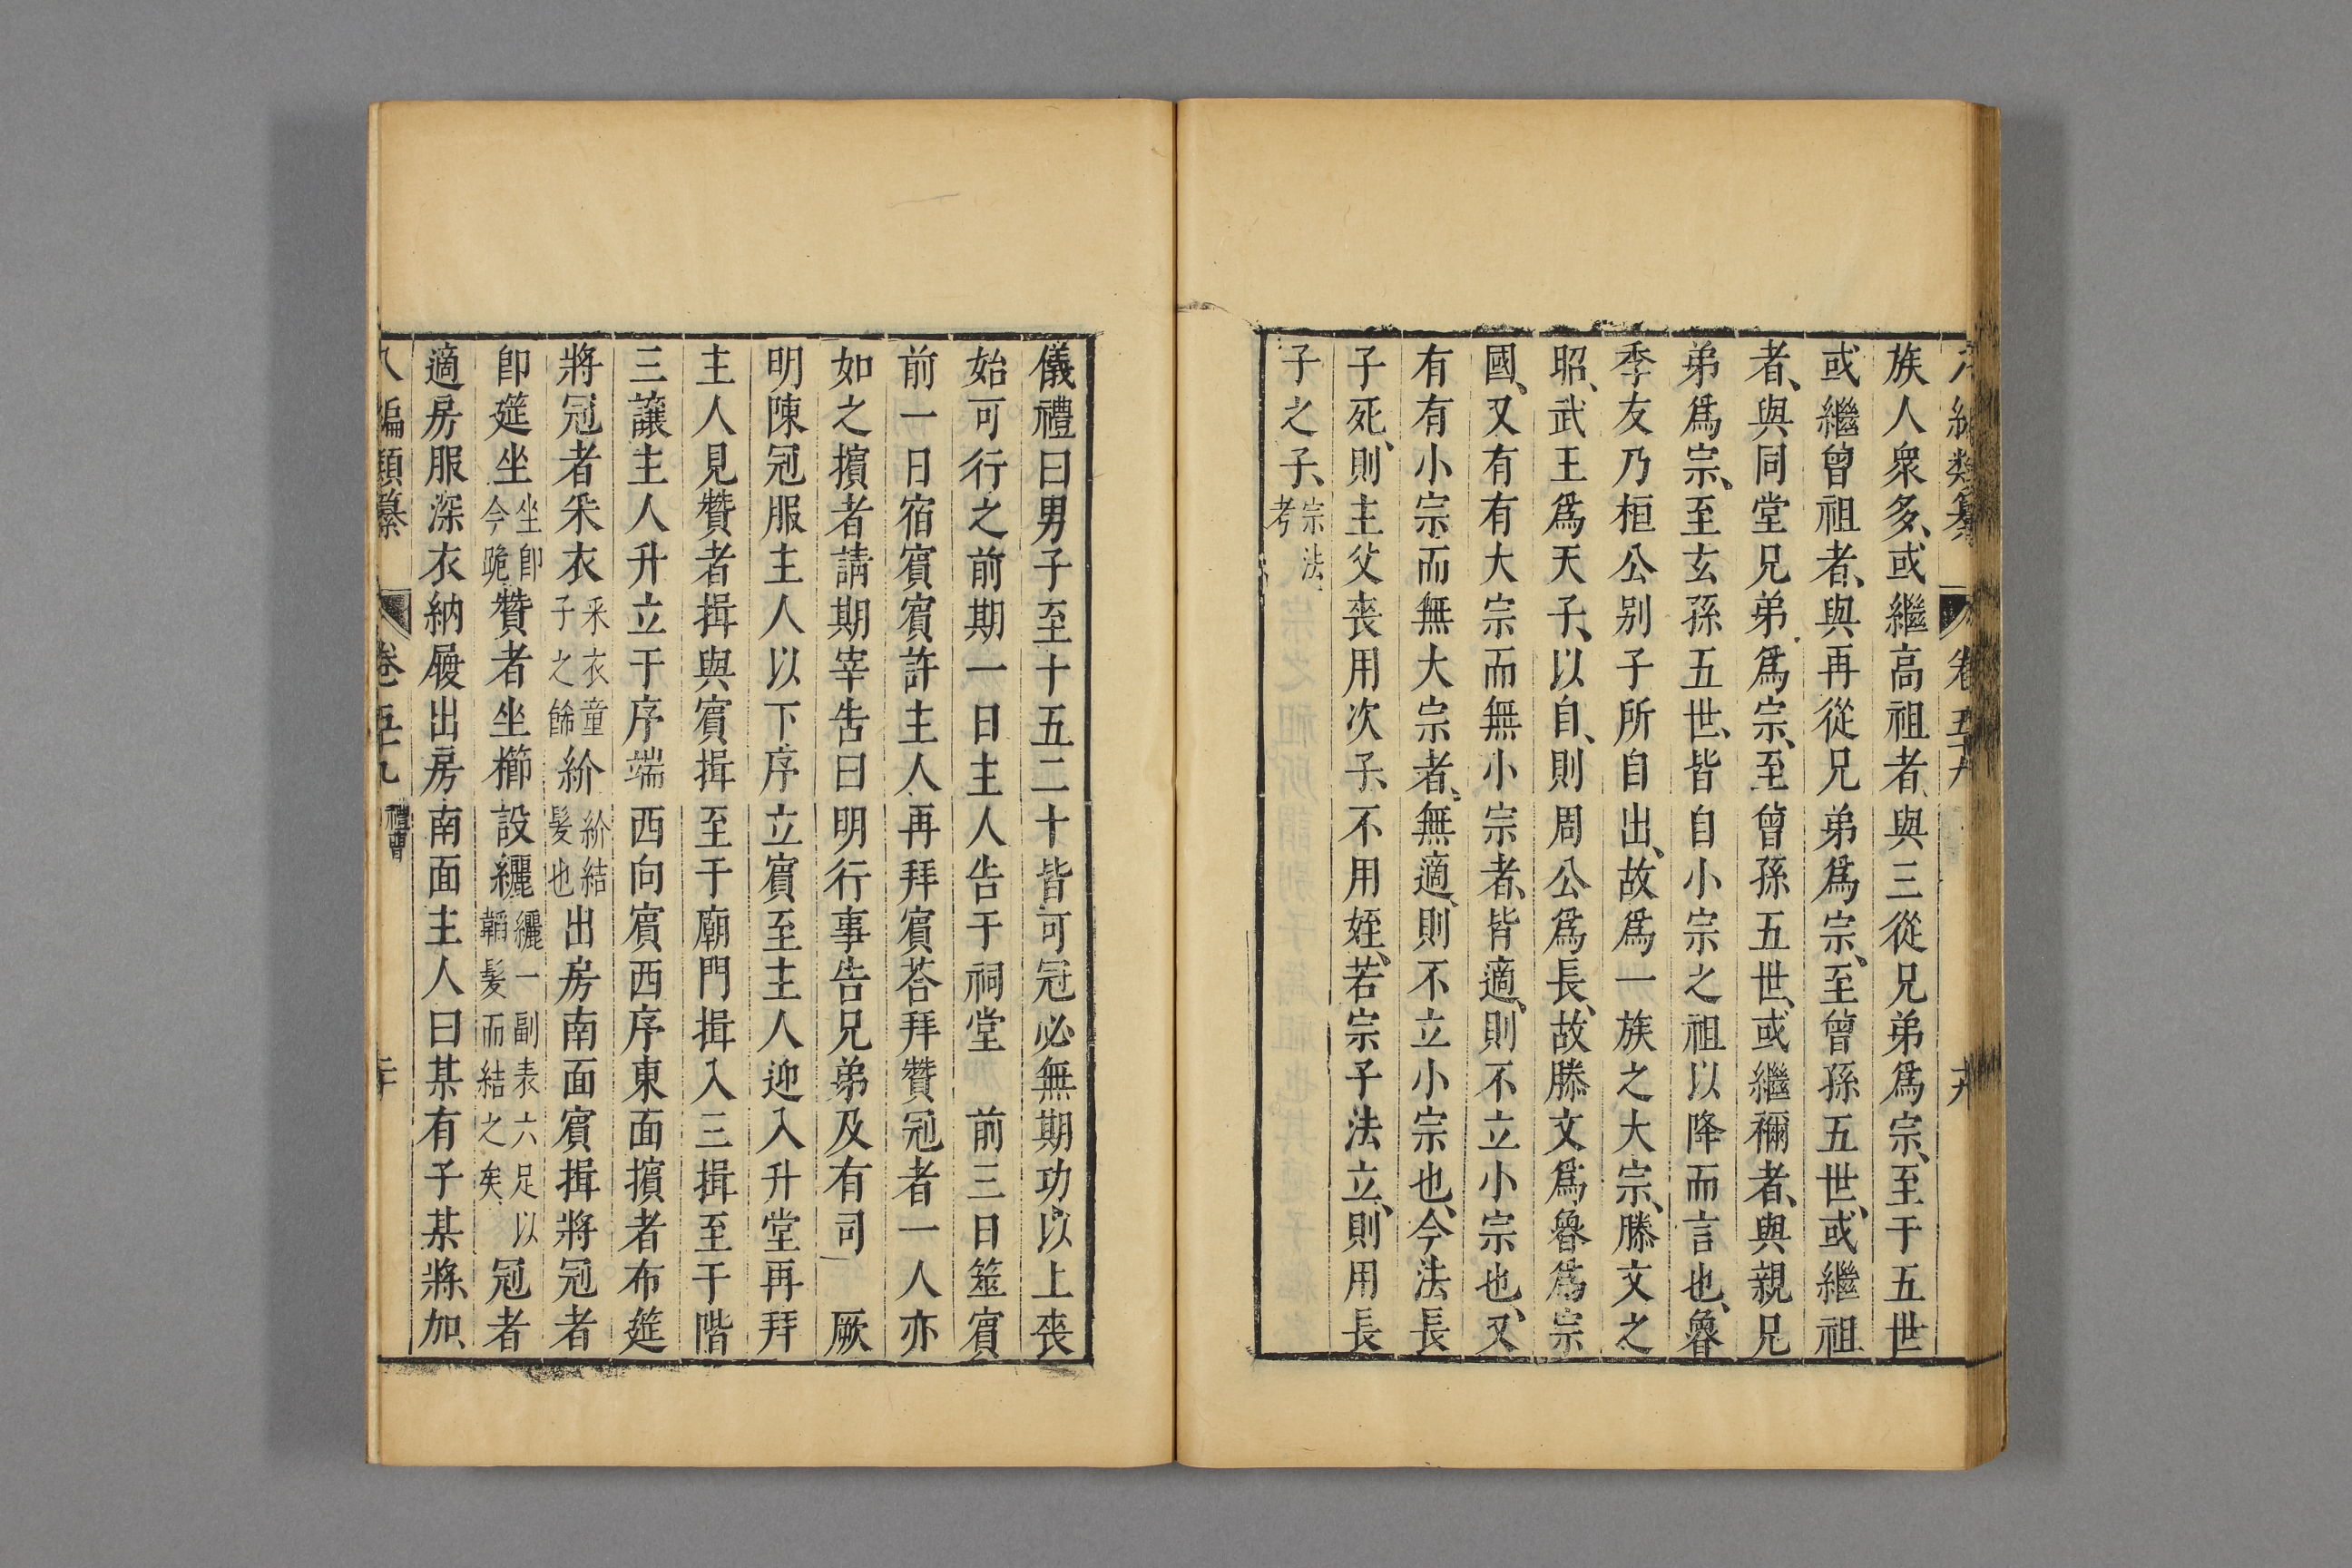 編類纂 卷五十九
族人衆多、或繼高祖者、與三從兄弟爲宗、至于五世
或繼曾祖者、與再從兄弟爲宗、至曾孫五世、或繼祖
者、與同堂兄弟爲宗、至曾孫五世、或繼禰者、與親兄
弟爲宗、至玄孫五世、皆自小宗之祖以降而言也、魯
季友乃桓公别子所自出、故爲一族之大宗、滕文之
昭、武王爲天子、以自、則周公爲長、故滕文爲魯爲宗
國、又有有大宗而無小宗者、皆適、則不立小宗也、又
有有小宗而無大宗者、無適、則不立小宗也、今法長
子死、則主父喪用次子、不用姪、若宗子法立、則用長
子之子、宗法考
儀禮曰男子至十五二十皆可冠必無期功以上喪
始可行之前期一日主人告于祠堂 前三日筮賓
前一日宿賓賓許主人再拜賓荅拜贊冠者一人亦
如之擯者請期宰告曰明行事告兄弟及有司 厥
明陳冠服主人以下序立賓至主人迎入升堂再拜
主人見贊者揖與賓揖至于廟門揖入三揖至于階
三讓主人升立于序端西向賓西序東面擯者布筵
將冠者采衣采衣童子之餙紒紒結髮也出房南面賓揖將冠者
卽筵坐坐卽今跪贊者坐櫛設纚纚一副表六足以韜髮而結之矣冠者
適房服深衣納履出房南面主人曰某有子某將加
編類纂 卷五十九 禮曹 二十